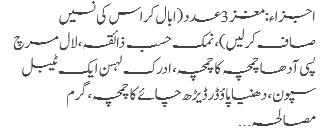 اجزاء: مغز 3 عدد (ابال کر اس کی نسیں
صاف کر لیں)، نمک حسب ذائقہ، لال مرچ
پسی آدھا چمچہ کا چمچہ، ادرک لہسن ایک ٹیبل
سپون، دھنیا پاؤڈر ڈیڑھ چائے کا چمچہ، گرم
مصالحہ...